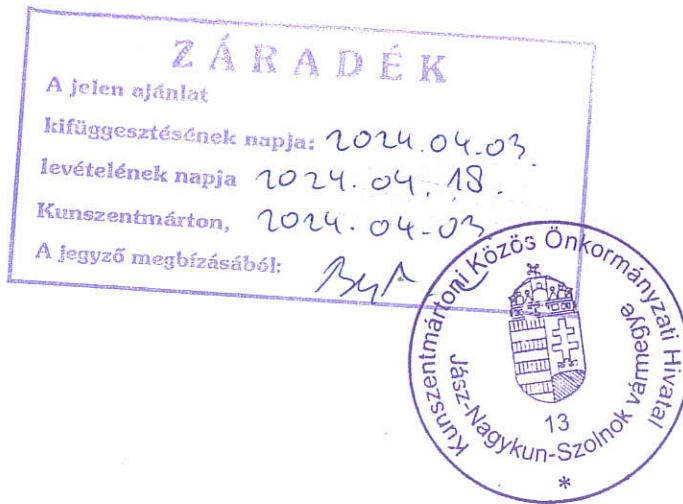 ZÁRADÉK
A jelen ajánlat
kifüggesztésének napja: 2024.04.03.
levételének napja 2024.04.18.
Kunszentmárton, 2024.04.03
A jegyző megbízásából:
Kunszentmártoni Közös Önkormányzati Hivatal
Jász-Nagykun-Szolnok vármegye
13
*